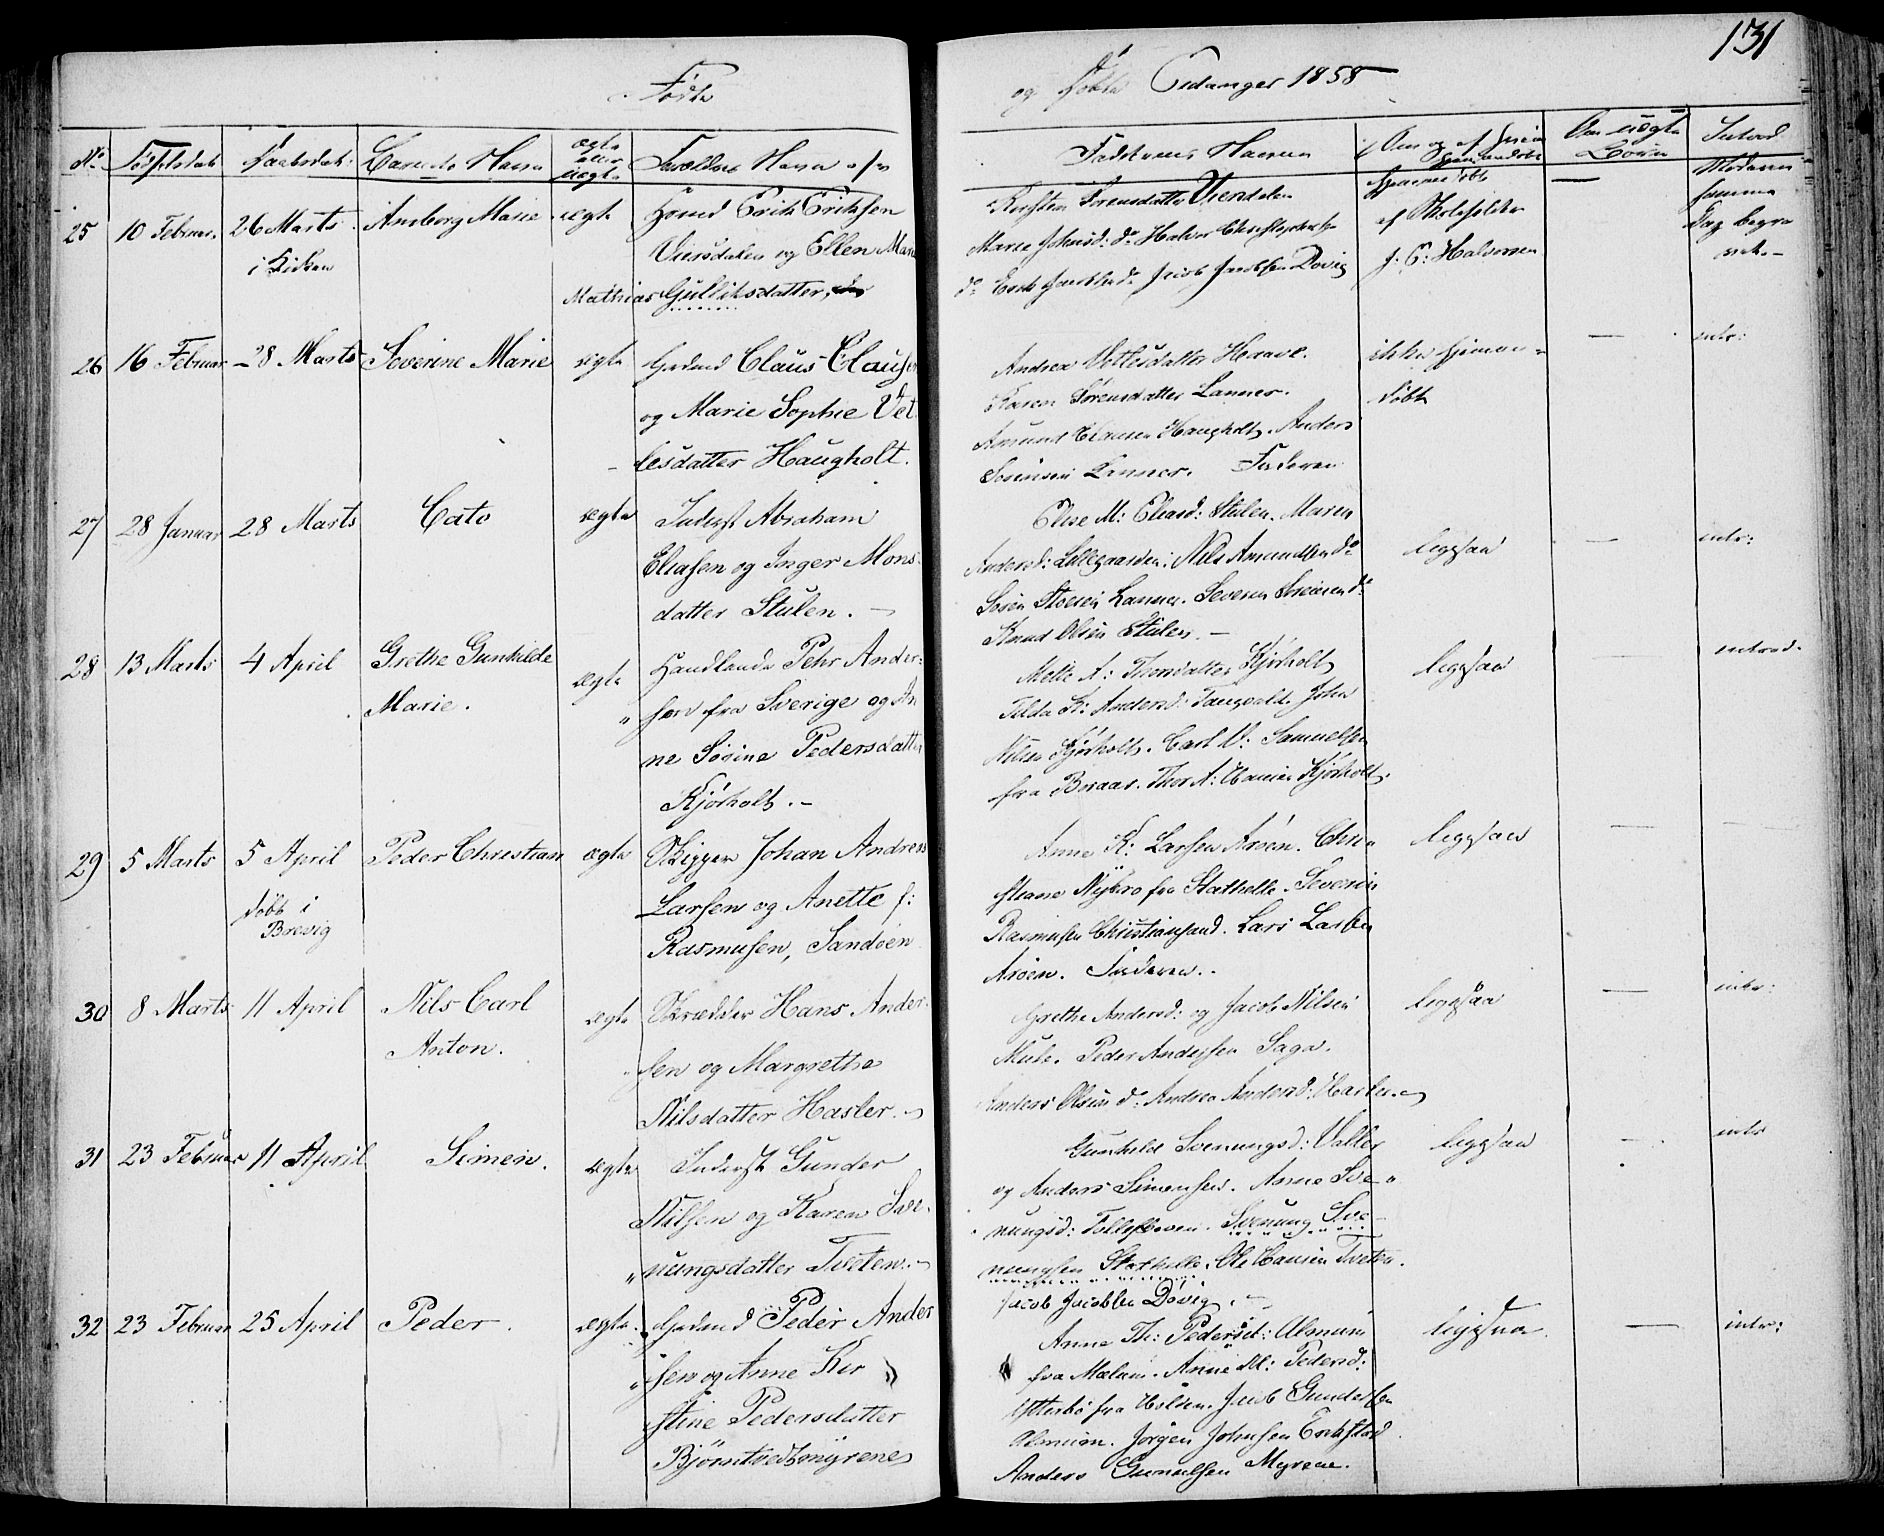 131
Fødte
og døbte Eidanger 1858
No Fødselsdat Daabsdat: Barnets Navn ægte eller uægte Forældres Navn
Faddernes Navne Om uægte Introd
25 10 Februar. 26 Marts i Kirken Anborg Marie ægte
Erik Eriksen
Viersdalen og Ellen Marie
Mathias Gulliksdatter,
Kirsten Sørensdatter Viersdalen
Marie Johnsd: do Halvor
do Jacob Jacobsen Døvig
Hjemmedøbt
af Skoleholder
J: C: Halvorsen
Moderen
samme
Dag
26 16 Februar 28 Marts Severine Marie ægte
Grdmd Claus Clausen
og Marie Sophie Vet-
lesdatter Haugholt.
Andrea Vetlesdatter
Karen Sørensdatter Lanner.
Amund Clausen Haugholt. Anders
Sørensen Lanner. Faderen
ikke hjemme-
døbt
intr:
27 28 Januar 28 Marts Cato ægte
Inderst Abraham
Eliasen og Inger Mons-
datter Stulen.
Elise M: Eliasd: Stulen. Maren
Andersd: Lillegaarden. Nils Amundsen do
Søren Lanner. Severin Sørensen do
Knud Olsen Stulen.
ligesaa
intr:
28 13 Marts 4 April Grethe Gunhilde
Marie. ægte
Handlende Pehr Ander-
sen fra Sverige og An-
ne Sørine Pedersdatter
Kjørholt.
Mette A: Thorsdatter Kjørholt
Tilda K: Andersd: Tangvald. John
Nilsen Kjørholt. Carl V: Samuelsen
fra Boraas. Thor A: Hansen Kjørholt.
ligesaa
introd.
29 5 Marts 5 April
døbt i
Brevig
Peder Christian ægte
Skipper Johan Andreas
Larsen og Anette f:
Rasmusen, Sandøen
Anne K: Larsen Arøen. Chri-
stiane Nykro fra Stathelle. Severin
Rasmusen Christiansand. Lars Larsen
Arøen. Faderen.
ligesaa
30 8 Marts 11 April Nils Carl
Anton. ægte
Skrædder Hans Ander-
sen og Margrethe
Nilsdatter Hasler.
Grethe Andersd: og Jacob Nilsen
Mule. Peder Andersen Saga.
Anders Olsen do Andrea Andersd: Hasler.
ligesaa
intr:
31 23 Februar 11 April Simen. ægte
Inderst Gunder
Nilsen og Karen Sve-
nungsdatter Tveten.
Gunhild Svenungsd: Valler
og Anders Simensen. Anne Sve-
nungsd: Svenung Sve-
nungsen Stathelle. Ole Hansen Tveten.
Jacob Jacobsen Døvig.
ligesaa
intr
32 23 Februar 25 April Peder. ægte
Grdmd Peder Ander
sen og Anne Kir
stine Pedersdatter
Bjørntvedtmyrene
Anne Th: Pedersd:
fra Mælum. Anne M: Pedersd:
Jacob Gundersen
Jørgen Johnsen
Anders Gunulfsen Myrene.
ligesaa
intr: